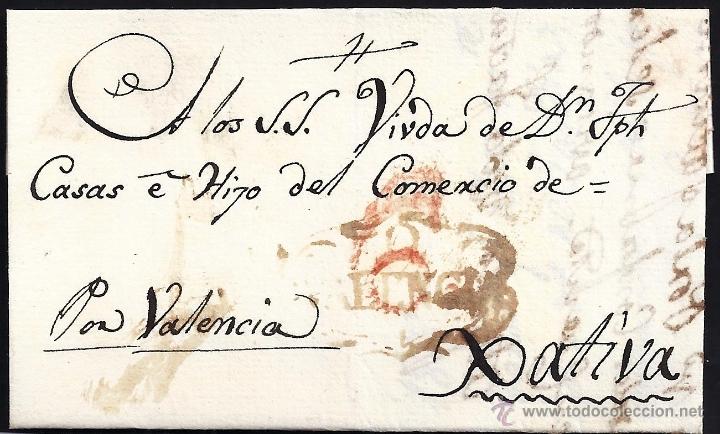 A los S.S. Viuda de Dn. Jph
Casas é Hijo del Comercio de =
Por Valencia
Xativa
www.todocoleccion.net